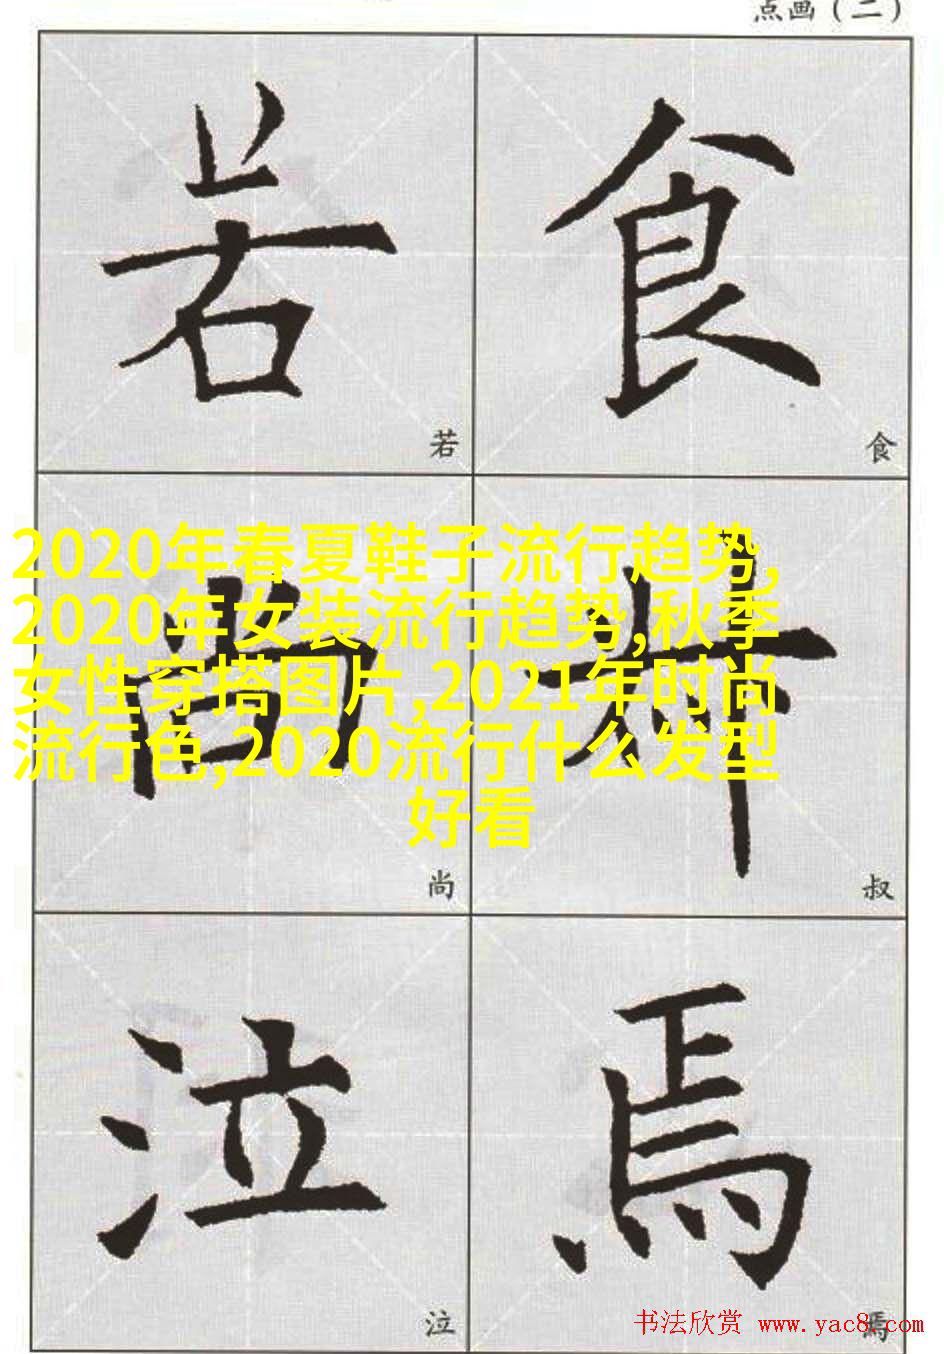 点画（二）
若
食
若
食
2020年春夏鞋子流行趋势,
2020年女装流行趋势,秋季
女性穿搭图片,2021年时尚
流行色,2020流行什么发型
好看
尚
尚
叔
泣
焉
泣
焉
书法欣赏 www.yac8.com